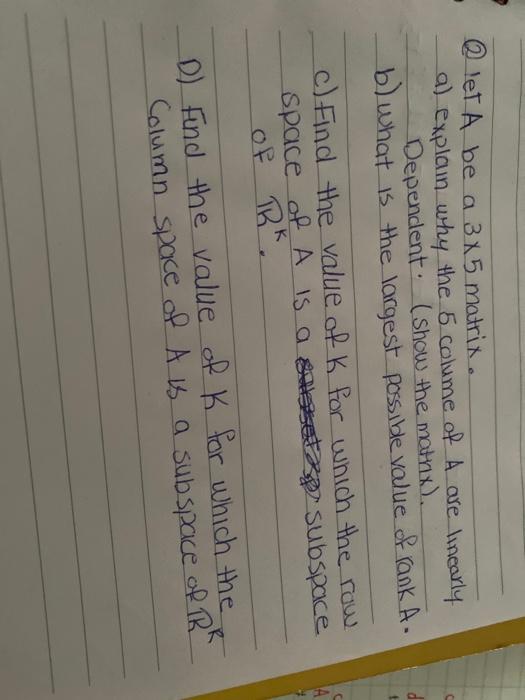 Q) let A be a 3x5 matrix.
a) explain why the 5 colume of A are linearly
Dependent. (show the matrix).
b) what is the largest possible value of rank A.
c) Find the value of K for which the row
space of A is a subspace
of ℝᴷ.
D) find the value of K for which the
Column space of A is a subspace of ℝᴷ